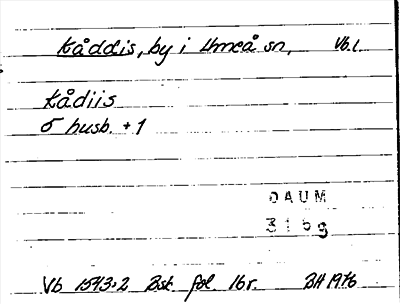 Kåddis, by i Umeå sn, Vb.l.
Kådiis
5 husb. + 1
DAUM
3159
Vb 1543:2 Bsk. fol. 16r. BH 1976